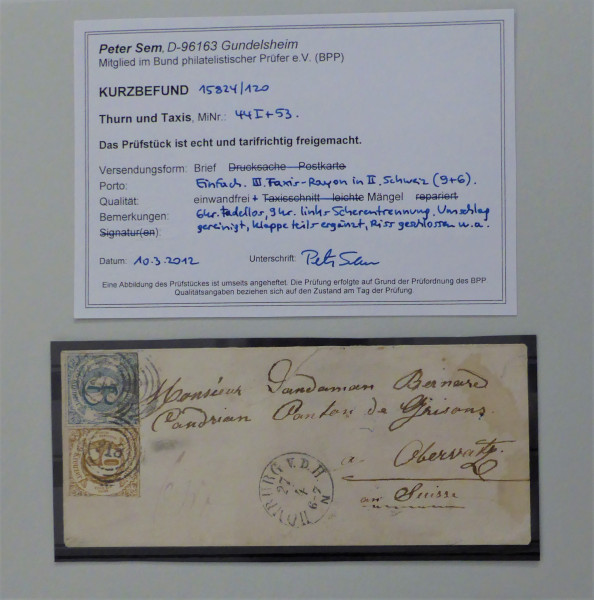 Peter Sem, D-96163 Gundelsheim
Mitglied im Bund philatelistischer Prüfer e.V. (BPP)
KURZBEFUND 15824/120
Thurn und Taxis, MiNr.: 44 I + 53.
Das Prüfstück ist echt und tarifrichtig freigemacht.
Versendungsform: Brief Drucksache Postkarte
Porto: Einfach. III. Taxis-Rayon in II. Schweiz (9+6).
Qualität: einwandfrei + Taxisschnitt leichte Mängel repariert
Bemerkungen: 6kr. tadellos, 3kr. links Scherentrennung. Umschlag
Signatur(en): gereinigt, Klappe teils ergänzt, Riss geschlossen u.a.
Datum: 10.3.2012 Unterschrift: Peter Sem
Eine Abbildung des Prüfstückes ist umseits angeheftet. Die Prüfung erfolgte auf Grund der Prüfordnung des BPP
Qualitätsangaben beziehen sich auf den Zustand am Tag der Prüfung.
Monsieur Dandaman Bernard
Candrian Canton de Grisons
a Obervatz
en Suisse
HOMBURG V.D.H.
27
4
6-7 N